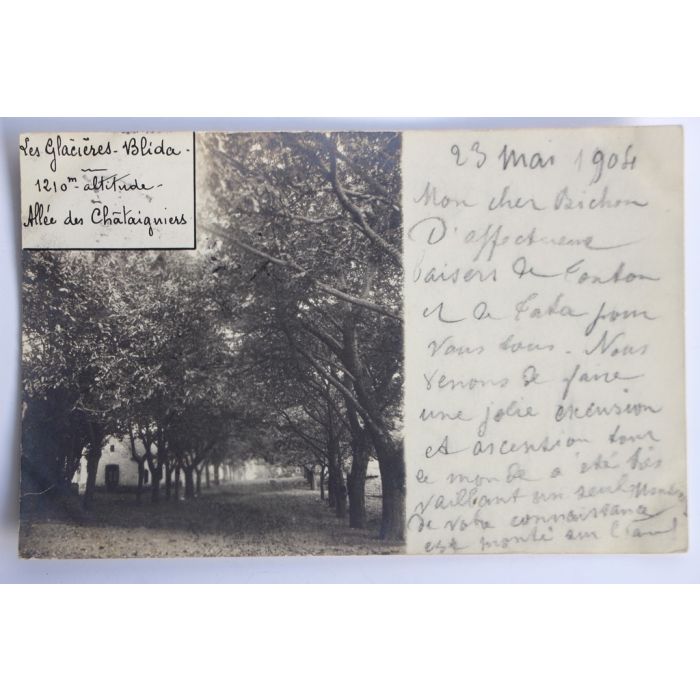 Les Glacières - Blida -
1210m altitude -
Allée des Châtaigniers
23 mai 1904
Mon cher Bichon
D'affectueux
baisers de Tonton
et de Tata pour
vous tous. Nous
venons de faire
une jolie excursion
et ascention tout
le monde a été très
vaillant un seul
de votre connaissance
est monté sur